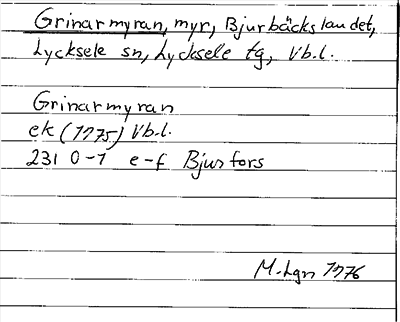 Grinarmyran, myr, Bjurbäckslandet,
Lycksele sn, Lycksele tg, Vb.l.
Grinarmyran
ek (1975) Vb.l.
231 0-1 e-f Bjurfors
M.Lgn 1976